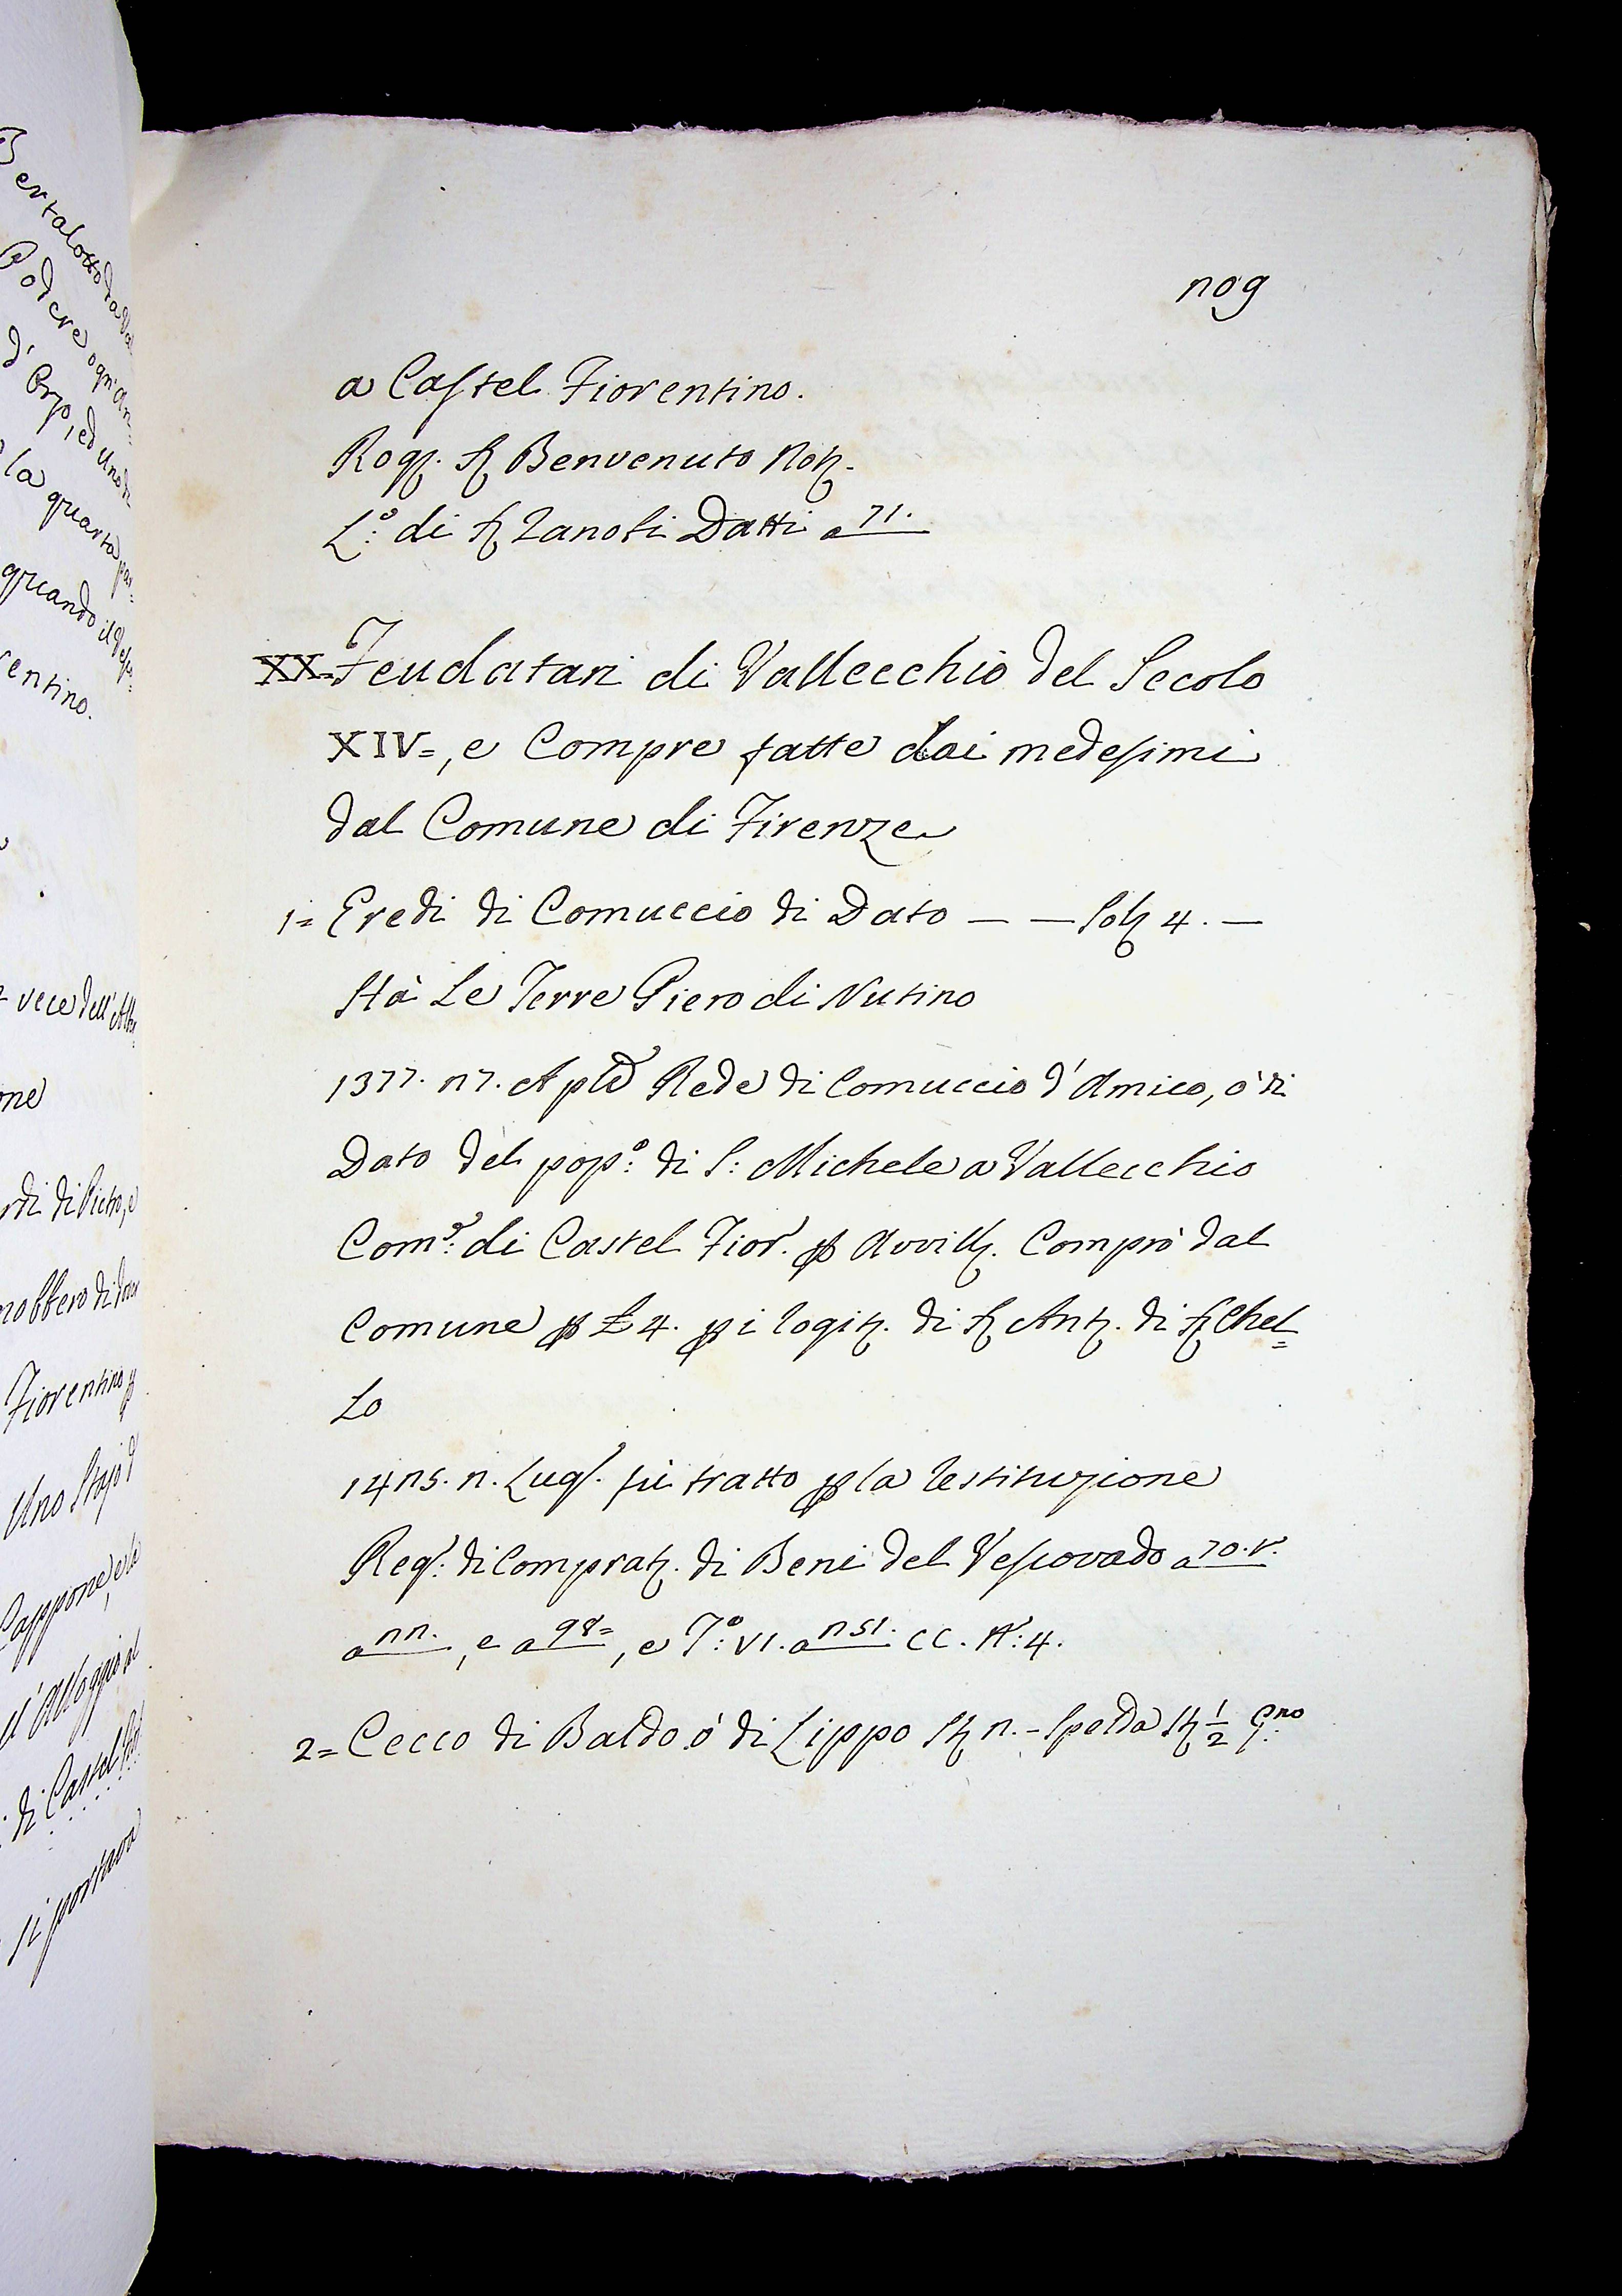 Bertalotto da Va
Podere ogn'An=
d'Orzo, ed Uno di
la quarta par=
quando il Vesc=
rentino.
vece dell'Alb=
one
rdi di Pietro, e
nobbero di dare
Fiorentino p
Uno Stajo d
Cappone, e le
d'Alloggio al
di Castel Fior
si portava
209
a Castel Fiorentino.
Rog. Ser Benvenuto Not.
L.º di Ser Zanobi Datti a 71.
XX= Feudatari di Vallecchio del Secolo
XIV=, e Compre fatte dai medesimi
dal Comune di Firenze
1= Eredi di Comuccio di Dato — — Sol. 4. —
Stà Le Terre Piero di Nutino
1377. 27. Aple Rede di Comuccio d'Amico, ò di
Dato del pop.º di S: Michele a Vallecchio
Com.e di Castel Fior. p Avvill. Comprò dal
Comune p £ 4. p i logit. di Ser Ant. di Ser Chel=
lo
1425. 2. Lugl. fù tratto p la restituzione
Reg: di Comprat. di Beni del Vescovado a 70. v.
a 22., e a 98=, e T.º VI. a 251. CC. N: 4.
2= Cecco di Baldo ò di Lippo St. 2. - Spelda St. 1/2 G.no